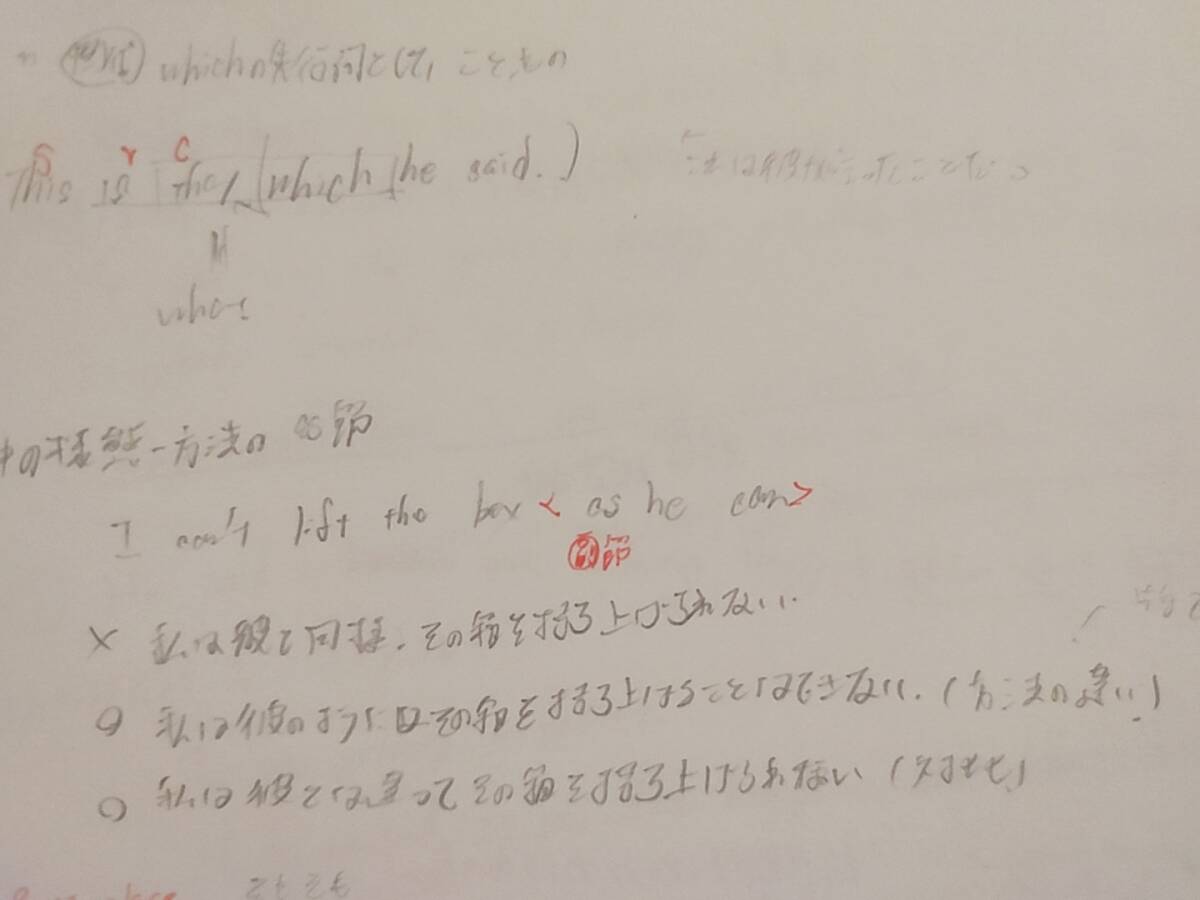 whichの先行詞として、こと、もの
S V C
This is the, (which he said.)
これは彼が言ったことだ。
what
の様態-方法の as 節
I can't lift the box < as he can>
副節
× 私は彼と同様、その箱を持ち上げられない.
○ 私は彼のようにはその箱を持ち上げることはできない. (方法の違い)
○ 私は彼とは違ってその箱を持ち上げられない (対比)